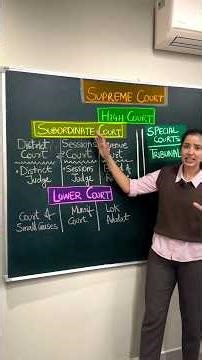 SUPREME COURT
HIGH COURT
SUBORDINATE COURT
SPECIAL COURTS
TRIBUNAL
District Court
Sessions Court
Court
• District Judge
• Sessions Judge
LOWER COURT
Court of Small Causes
Munsif Court
Lok Adalat